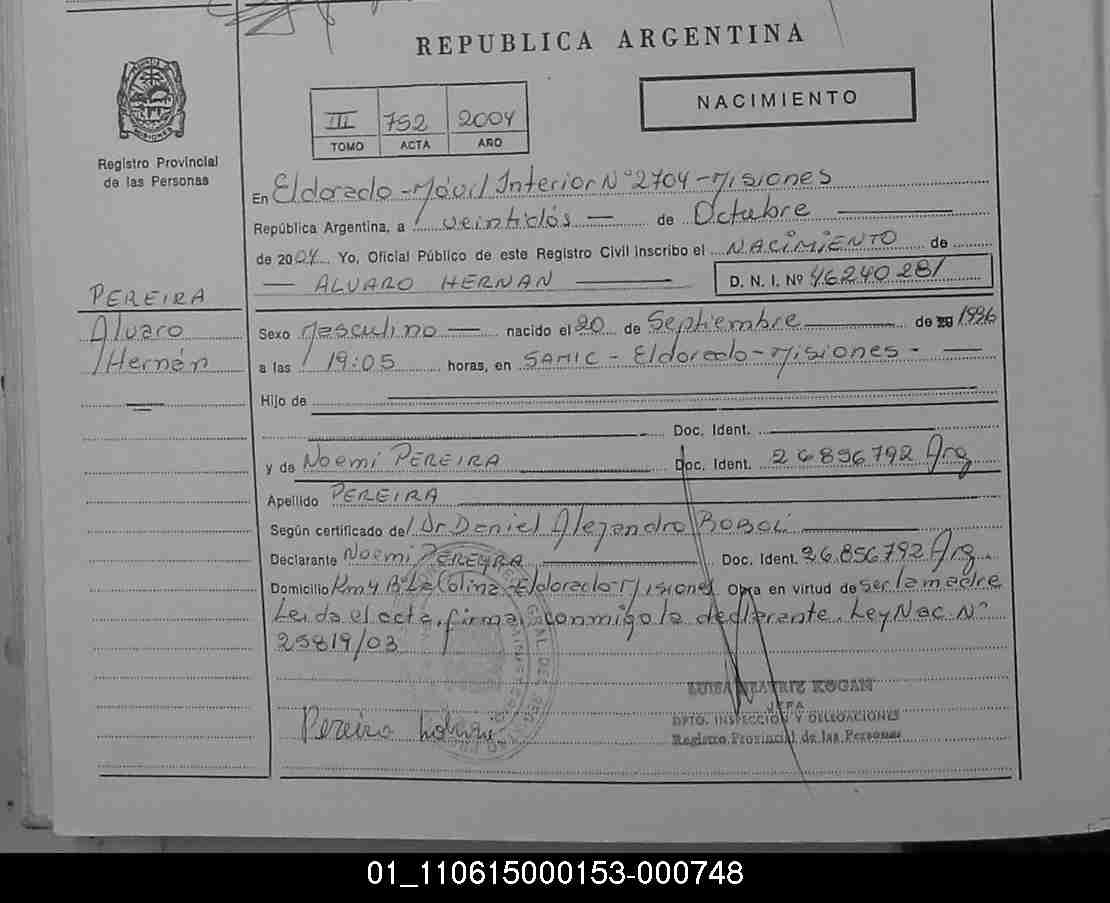 REPUBLICA ARGENTINA
NACIMIENTO
III 752 2004
TOMO ACTA AÑO
Registro Provincial
de las Personas
PEREIRA
Alvaro
Hernán
En Eldorado - Móvil Interior N° 2704 - Misiones
República Argentina, a veintidós — de Octubre
de 2004 Yo, Oficial Público de este Registro Civil inscribo el NACIMIENTO de
— ALVARO HERNAN — D. N. I. Nº 46240281
Sexo Masculino — nacido el 20 de Septiembre de 1996
a las 19:05 horas, en SAMIC - Eldorado - Misiones -
Hijo de
Doc. Ident.
y de Noemí PEREIRA Doc. Ident. 26856792 Arg
Apellido PEREIRA
Según certificado del Dr Daniel Alejandro
Declarante Noemi PEREYRA Doc. Ident. 26.856792 Arg.
Domicilio Km 4 Bº La Colina - Eldorado - Misiones Obra en virtud de ser la madre
Leida el acta, firma conmigo la declarante. Ley Nac. Nº
25819/03
Pereira
LUISA BEATRIZ KOGAN
JEFA
DPTO. INSPECCION Y DELEGACIONES
Registro Provincial de las Personas
01_110615000153-000748